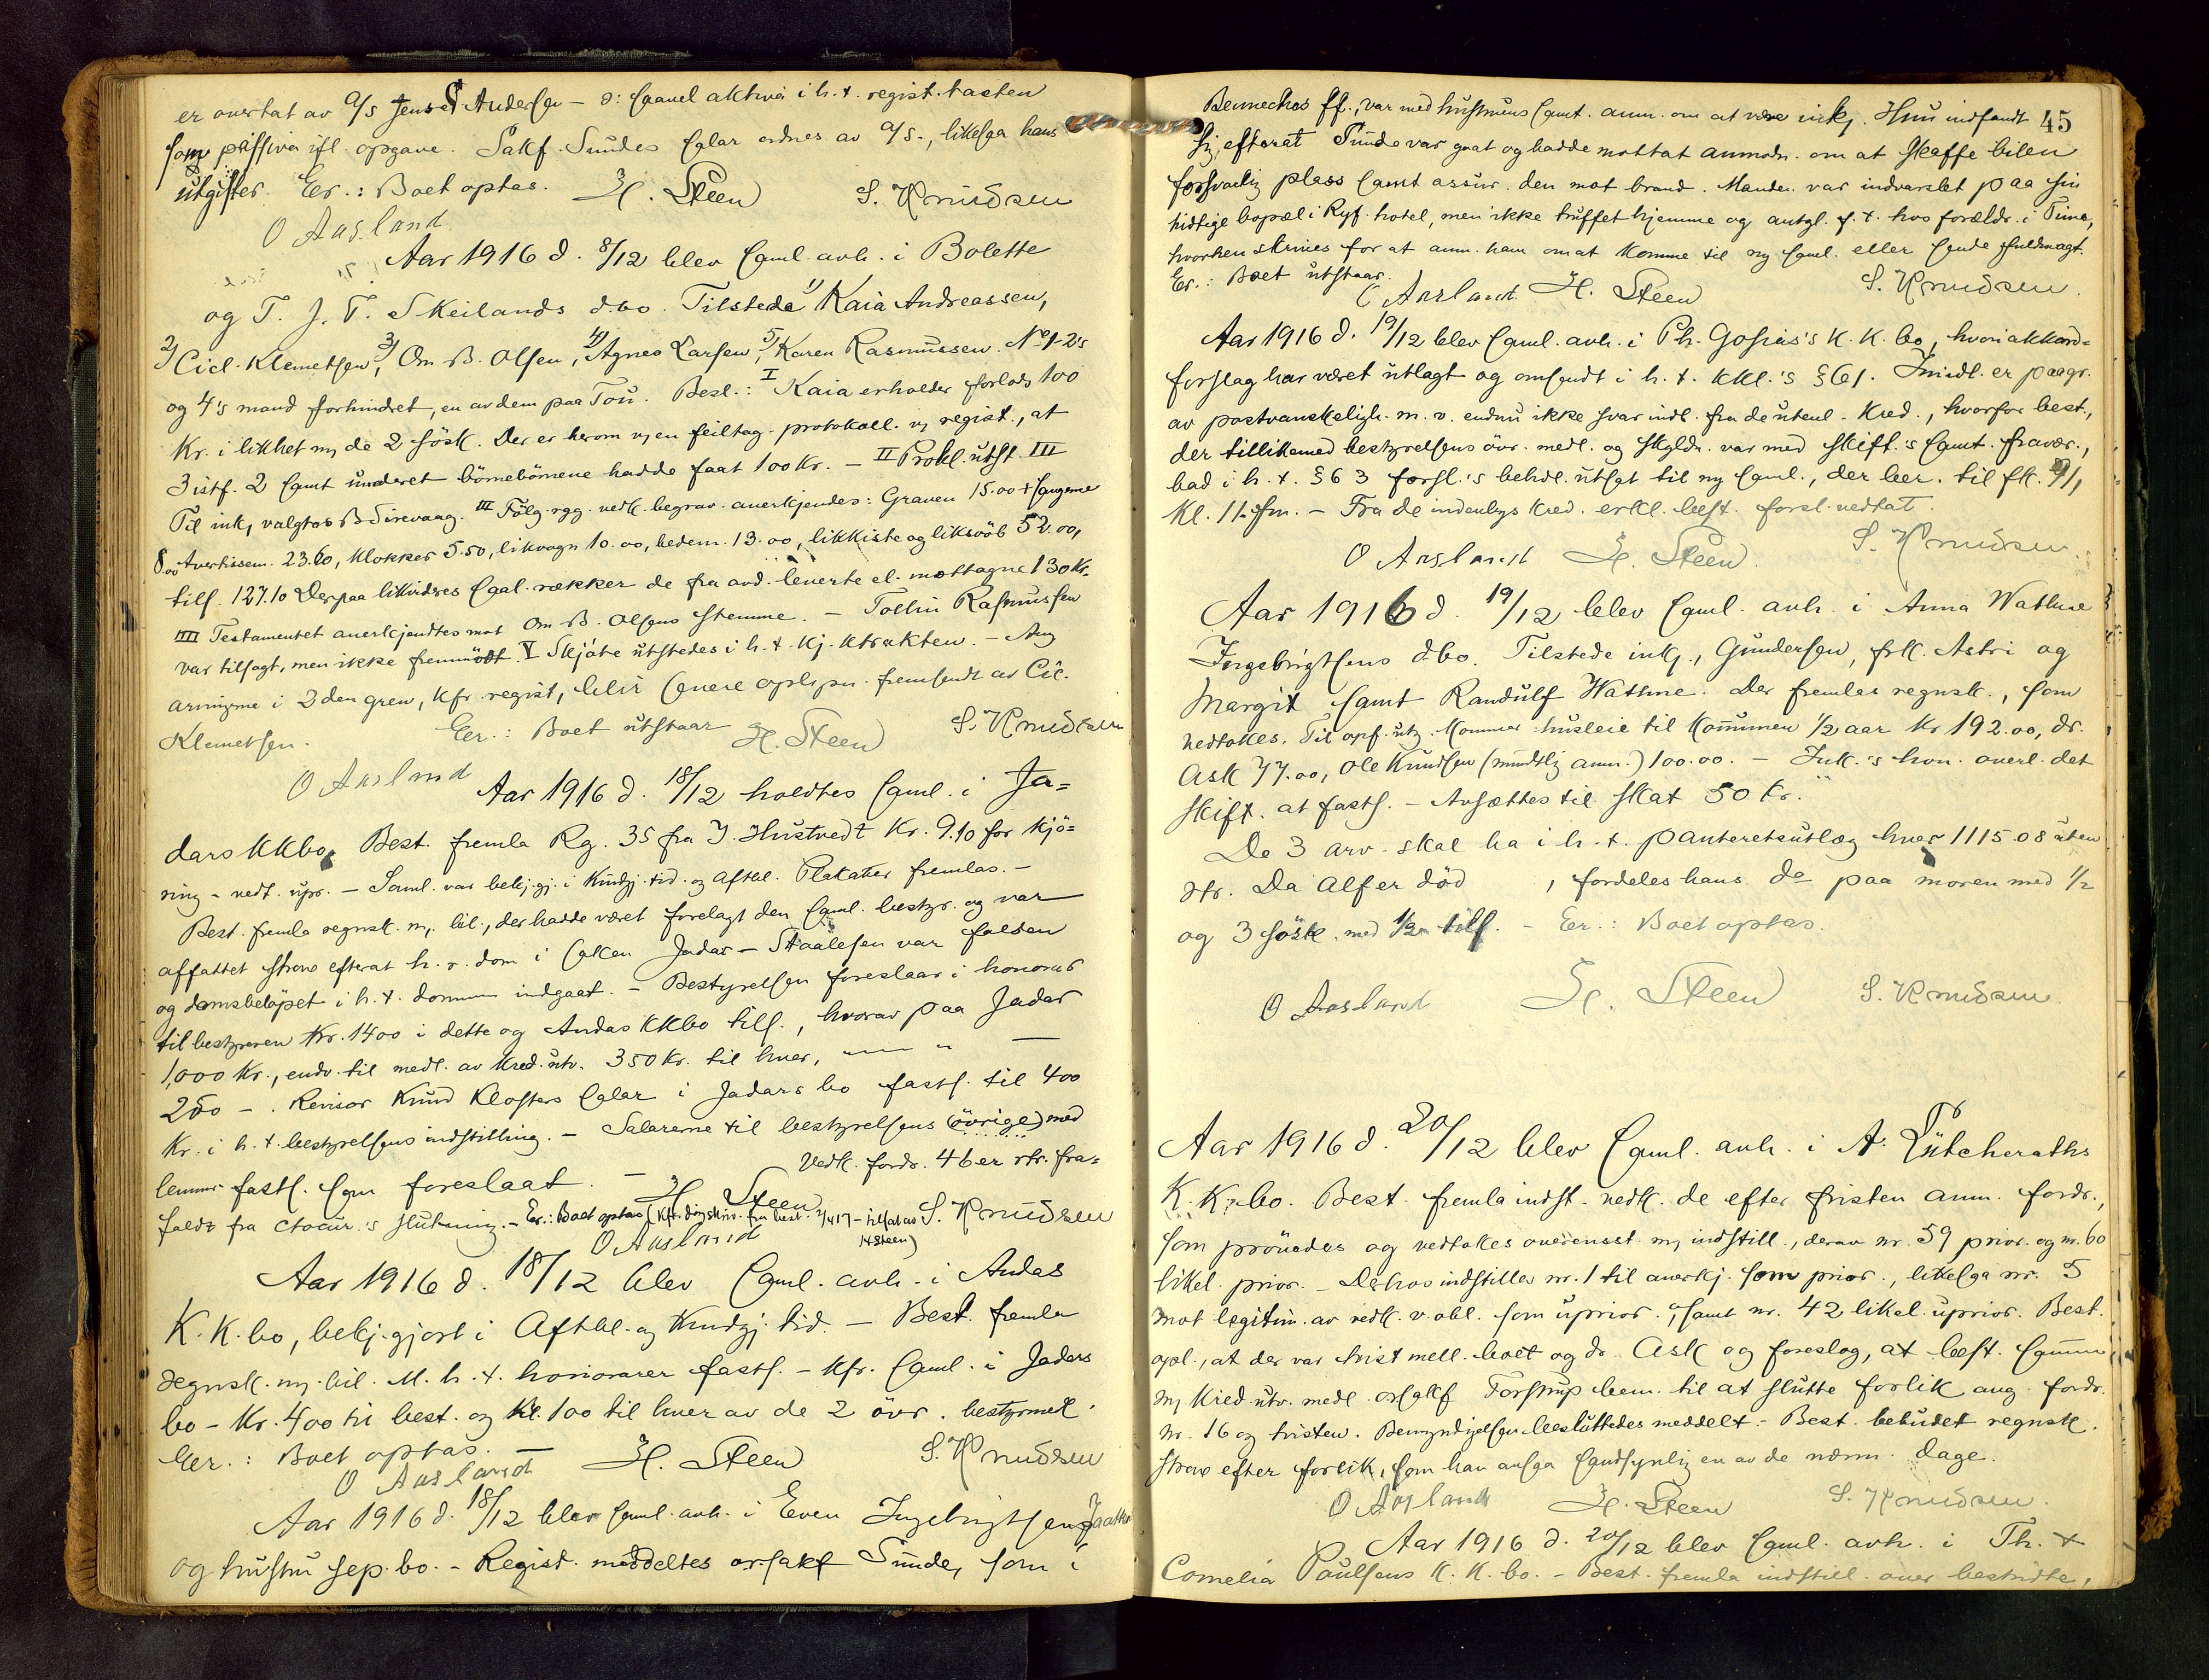 er overtat av A/S Jens S Andersen – ɔ: saavel aktiva i h. t. regist. tasten
som passiva ifl. opgave. Sakf. Sundes salær ordnes av A/S., likesaa hans
utgifter. Eer.: Boet optas. H. Steen S. Knudsen
O Aasland
Aar 1916 d. 8/12 blev saml. avh. i Bolette
og T. J. T. Skeilands dbo. Tilstede 1) Kaia Andreassen,
2) Cicl. Klemetsen, 3) Om B. Olsen, 4) Agnes Larsen, 5) Karen Rasmussen. No 1-2's
og 4's mand forhindret, en av dem paa Tou. Besl.: I Kaia erholder forlods 100
Kr. i likhet m; de 2 søsk. Der er herom v; en feiltag. protokoll. v; regist., at
3 istf. 2 samt underet børnebørnene hadde faat 100 Kr. – II Prokl. utst. III
Til ink, valgtes B Sirevaag. III Følg. rgg. vedk. begrav. anerkjendes: Graven 15.00 + sangerne
8.00 Avertissem. 23.60, klokker 5.50, likvogn 10.00, bedem. 13.00, likkiste og liksvøb 52.00,
tils. 127.10 Derpaa likvideres saal. rækker de fra avd. leverte el. mottagne 130 Kr.
IIII Testamentet anerkjendtes mot Om B. Olsens stemme. – Tollin Rasmussen
var tilsagt, men ikke fremmødt. V Skjøte utstedes i h. t. kj. ktrakten. – Ang
arvingerne i 2den gren, kfr. regist, blir senere oplysn. fremsendt av Cic.
Klemetsen. Eer.: Boet utstaar H. Steen S. Knudsen
O Aasland Aar 1916 d. 18/12 holdtes saml. i Ja=
dars KKbo. Best. fremla Rg. 35 fra J. Hustvedt Kr. 9.10 for kjø=
ring – vedt. upr. – Saml. var bekj. gj. i Kundgj. tid. og Aftbl. Plakater fremlas. –
Best. fremla regnsk. m; bil., der hadde været forelagt den saml. bestyr. og var
affattet straks efterat h. r. dom i saken Jadar – Staalesen var falden
og domsbeløpet i h. t. dommen indgaat. – Bestyrelsen foreslaar i honorar
til bestyreren Kr. 1400 i dette og Andas KKbo tils., hvorav paa Jadar
1,000 Kr., endv. til medl. av Kred. utv. 350 Kr. til hver, —"— " —
250 – . Revisor Knud Klosters salær i Jadars bo fasts. til 400
Kr. i h. t. bestyrelsens indstilling. – Salærerne til bestyrelsens (øvrige) med
lemmer fasts. som foreslaat. – Vedk. fordr. 46 er str. fra=
faldt fra ctocur.'s slutning. – Eer.: Boet optas (Kfr. dog skriv. fra best. 2/4 17 – tilsat av H Steen) H Steen S. Knudsen
O Aasland
Aar 1916 d. 18/12 blev saml. avh. i Andas
K. K. bo, bekj. gjort i Aftbl. og Kundgj. tid. – Best. fremla
regnsk. m; bil. M. h. t. honorarer fasts. – kfr. saml. i Jadars
bo – Kr. 400 til best. og Kr. 100 til hver av de 2 øvr. bestyrmedl.
Eer.: Boet optas. – H. Steen S. Knudsen
O Aasland
Aar 1916 d. 18/12 blev saml. avh. i Even Ingebrigtsen Jaattas
og hustru sep. bo. – Regist. meddeltes orsakf Sunde, som i
45
Bennechес ff., var med hustruens samt. anm. om at være inkj. Hun indfandt
sig, efterat Sunde var gaat og hadde mottat anmodn. om at skaffe bilen
forsvarlig plass samt assur. den mot brand. Manden var indvarslet paa sin
hidtige bopæl i Ryf. hotel, men ikke truffet hjemme og antgl. f. t. hos forældr. i Time,
hvorhen skrives for at anm. ham om at komme til ny saml. eller sende fuldmagt.
Eer.: Boet utstaar.
O Aasland H. Steen S. Knudsen.
Aar 1916 d. 19/12 blev saml. avh. i Ph. Gosias's K. K. bo, hvori akkord=
forslag har været utlagt og omsendt i h. t. KKl.'s § 61. Imidl. er paagr.
av postvanskeligh. m. v. endnu ikke svar indl. fra de utenl. Kred., hvorfor best.,
der tillikemed bestyrelsens øvr. medl. og skyldn. var med skift.'s samt. fravær.,
bad i h. t. § 63 forsl.'s behdl. utsat til ny saml., der ber. til fk. 9/1
Kl. 11 fm. – Fra de indenbys kred. erkl. best. forsl. vedtat.
O Aasland H. Steen S. Knudsen.
Aar 1916 d. 19/12 blev saml. avh. i Anna Wathne
Ingebrigtsens dbo. Tilstede inkj., Gundersen, frk. Astri og
Margit samt Randulf Wathne. Der fremlas regnsk., som
vedtokes. Til opf. utg. kommer husleie til Kommunen 1/2 aar Kr 192.00, dr.
Ask 77.00, Ole Knudsen (mundtlig anm.) 100.00. – Ink.'s hon. overl. det
skift. at fasts. – Avsættes til skat 50 Kr.
De 3 arv. skal ha i h. t. panteretsutlæg hver 1115.08 uten
str. Da Alf er død , fordeles hans do paa moren med 1/2
og 3 søsk. med 1/2 tils. – Eer.: Boet optas.
O Aasland H. Steen S. Knudsen
Aar 1916 d. 20/12 blev saml. avh. i A. Lütcheraths
K. K. bo. Best. fremla indst. vedk. de efter fristen anm. fordr.,
som prøvedes og vedtokes overensst. m; indstill., derav nr. 59 prior. og nr. 60
likel. prior. – Derhos indstilles nr. 1 til anerkj. som prior., likesaa nr. 5
mot legitim. av vedk. v. obl. som uprior., samt nr. 42 likel. uprior. Best.
opl., at der var tvist mell. boet og dr. Ask og foreslog, at best. sammen
m; Kred. utv. medl. orsakf Torstrup bem. til at slutte forlik ang. fordr.
nr. 16 og tvisten. Bemyndigelsen besluttedes meddelt. – Best. bebudet regnsk.
straks efter forlik, som han ansaa sandsynlig en av de nærm. dage.
O Aasland H. Steen S. Knudsen.
Aar 1916 d. 20/12 blev saml. avh. i Th. &
Cornelia Paulsens K. K. bo. – Best. fremla indstill. over bestridte,